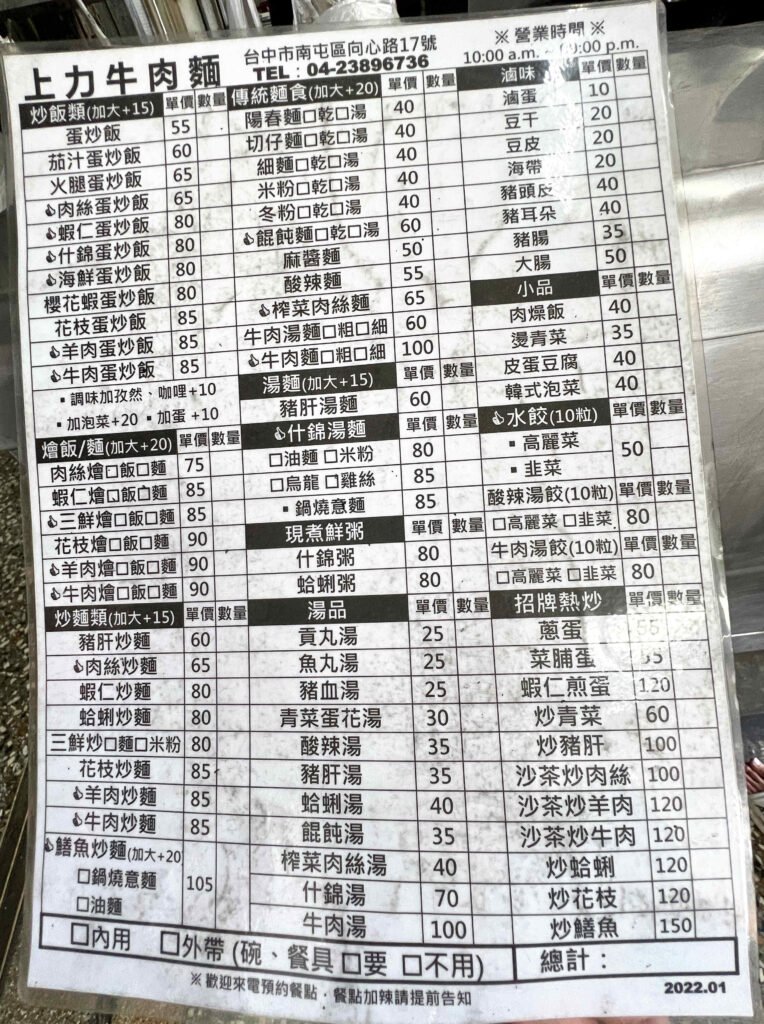 上力牛肉麵
台中市南屯區向心路17號
TEL：04-23896736
※ 營業時間 ※
10:00 a.m. ~ :00 p.m.
炒飯類(加大+15) 單價 數量
蛋炒飯 55
茄汁蛋炒飯 60
火腿蛋炒飯 65
👍肉絲蛋炒飯 65
👍蝦仁蛋炒飯 80
👍什錦蛋炒飯 80
👍海鮮蛋炒飯 80
櫻花蝦蛋炒飯 80
花枝蛋炒飯 85
👍羊肉蛋炒飯 85
👍牛肉蛋炒飯 85
▪調味加孜然、咖哩+10
▪加泡菜+20 ▪加蛋 +10
燴飯/麵(加大+20) 單價 數量
肉絲燴□飯□麵 75
蝦仁燴□飯□麵 85
👍三鮮燴□飯□麵 85
花枝燴□飯□麵 90
👍羊肉燴□飯□麵 90
👍牛肉燴□飯□麵 90
炒麵類(加大+15) 單價 數量
豬肝炒麵 60
👍肉絲炒麵 65
蝦仁炒麵 80
蛤蜊炒麵 80
三鮮炒□麵□米粉 80
花枝炒麵 85
👍羊肉炒麵 85
👍牛肉炒麵 85
👍鱔魚炒麵(加大+20
□鍋燒意麵 105
□油麵
傳統麵食(加大+20) 單價 數量
陽春麵□乾□湯 40
切仔麵□乾□湯 40
細麵□乾□湯 40
米粉□乾□湯 40
冬粉□乾□湯 40
👍餛飩麵□乾□湯 60
麻醬麵 50
酸辣麵 55
👍榨菜肉絲麵 65
牛肉湯麵□粗□細 60
👍牛肉麵□粗□細 100
湯麵(加大+15) 單價 數量
豬肝湯麵 60
👍什錦湯麵 單價 數量
□油麵 □米粉 80
□烏龍 □雞絲 85
▪鍋燒意麵 85
現煮鮮粥 單價 數量
什錦粥 80
蛤蜊粥 80
湯品 單價 數量
貢丸湯 25
魚丸湯 25
豬血湯 25
青菜蛋花湯 30
酸辣湯 35
豬肝湯 35
蛤蜊湯 40
餛飩湯 35
榨菜肉絲湯 40
什錦湯 70
牛肉湯 100
滷味 單價 數量
滷蛋 10
豆干 20
豆皮 20
海帶 20
豬頭皮 40
豬耳朵 40
豬腸 35
大腸 50
小品 單價 數量
肉燥飯 40
燙青菜 35
皮蛋豆腐 40
韓式泡菜 40
👍水餃(10粒) 單價 數量
▪高麗菜 50
▪韭菜
酸辣湯餃(10粒) 單價 數量
□高麗菜 □韭菜 80
牛肉湯餃(10粒) 單價 數量
□高麗菜 □韭菜 80
招牌熱炒 單價 數量
蔥蛋 55
菜脯蛋 55
蝦仁煎蛋 120
炒青菜 60
炒豬肝 100
沙茶炒肉絲 100
沙茶炒羊肉 120
沙茶炒牛肉 120
炒蛤蜊 120
炒花枝 120
炒鱔魚 150
□內用 □外帶 (碗、餐具 □要 □不用) 總計：
※ 歡迎來電預約餐點，餐點加辣請提前告知
2022.01